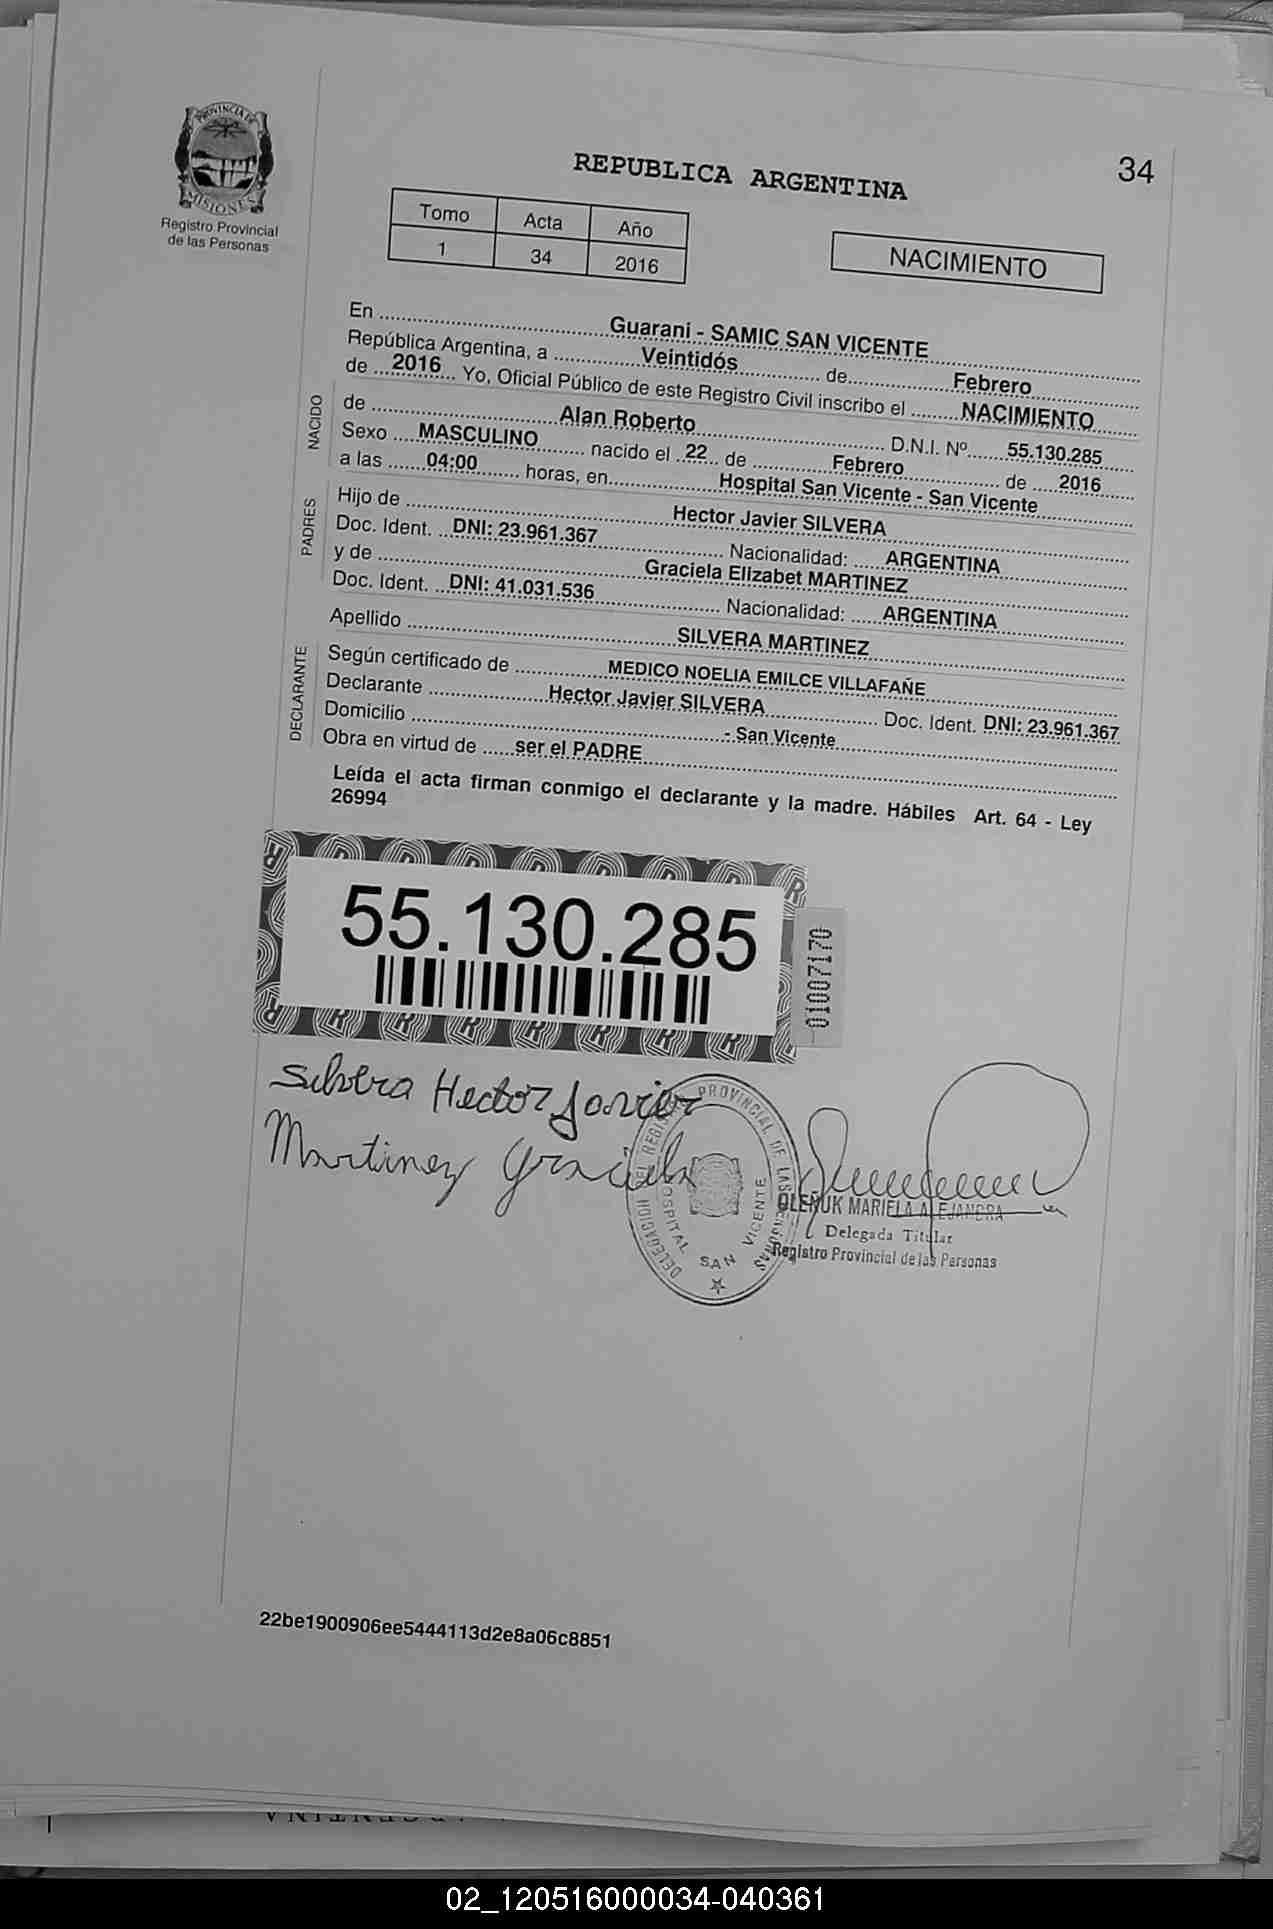 PROVINCIA DE
MISIONES
Registro Provincial
de las Personas
34
REPUBLICA ARGENTINA
Tomo Acta Año
1 34 2016
NACIMIENTO
En ........ Guarani - SAMIC SAN VICENTE ........
República Argentina, a ........ Veintidós ........ de ........ Febrero ........
de ... 2016 ... Yo, Oficial Público de este Registro Civil inscribo el ........ NACIMIENTO ........
NACIDO
de ........ Alan Roberto ........ D.N.I. Nº ........ 55.130.285 ........
Sexo .... MASCULINO ........ nacido el .. 22 .. de ........ Febrero ........ de .... 2016 ....
a las ...... 04:00 ...... horas, en ........ Hospital San Vicente - San Vicente ........
PADRES
Hijo de ........ Hector Javier SILVERA ........
Doc. Ident. ... DNI: 23.961.367 ........ Nacionalidad: ..... ARGENTINA ........
y de ........ Graciela Elizabet MARTINEZ ........
Doc. Ident. ... DNI: 41.031.536 ........ Nacionalidad: ..... ARGENTINA ........
Apellido ........ SILVERA MARTINEZ ........
DECLARANTE
Según certificado de ........ MEDICO NOELIA EMILCE VILLAFAÑE ........
Declarante ........ Hector Javier SILVERA ........ Doc. Ident. DNI: 23.961.367
Domicilio ........ - San Vicente ........
Obra en virtud de ..... ser el PADRE ........
Leída el acta firman conmigo el declarante y la madre. Hábiles Art. 64 - Ley
26994
55.130.285
01007170
Silvera Hector Javier
Martinez Graciela
DELEGACION DEL REGISTRO PROVINCIAL DE LAS PERSONAS
HOSPITAL SAN VICENTE
OLEÑUK MARIELA ALEJANDRA
Delegada Titular
Registro Provincial de las Personas
22be1900906ee5444113d2e8a06c8851
02_120516000034-040361